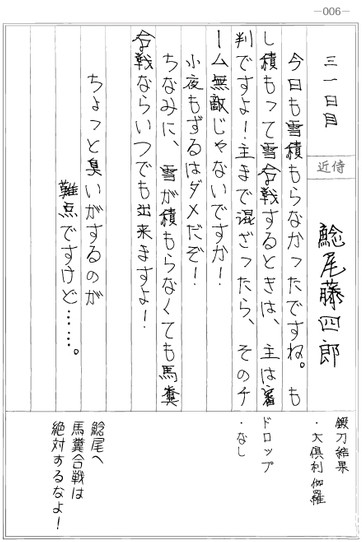 —006—
三一日目
近侍
鯰尾藤四郎
今日も雪積もらなかったですね。も
し積もって雪合戦するときは、主は審
判ですよ！主まで混ざったら、そのチ
ーム無敵じゃないですか！
小夜もずるはダメだぞ！
ちなみに、雪が積もらなくても馬糞
合戦ならいつでも出来ますよ！
ちょっと臭いがするのが
難点ですけど……。
鍛刀結果
・大倶利伽羅
ドロップ
・なし
鯰尾へ
馬糞合戦は
絶対するなよ！